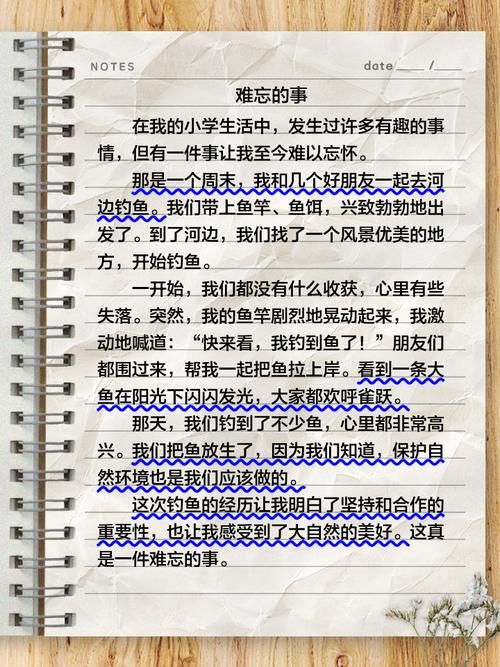 NOTES
date____ /____
难忘的事
在我的小学生活中，发生过许多有趣的事
情，但有一件事让我至今难以忘怀。
那是一个周末，我和几个好朋友一起去河
边钓鱼。我们带上鱼竿、鱼饵，兴致勃勃地出
发了。到了河边，我们找了一个风景优美的地
方，开始钓鱼。
一开始，我们都没有什么收获，心里有些
失落。突然，我的鱼竿剧烈地晃动起来，我激
动地喊道：“快来看，我钓到鱼了！”朋友们
都围过来，帮我一起把鱼拉上岸。看到一条大
鱼在阳光下闪闪发光，大家都欢呼雀跃。
那天，我们钓到了不少鱼，心里都非常高
兴。我们把鱼放生了，因为我们知道，保护自
然环境也是我们应该做的。
这次钓鱼的经历让我明白了坚持和合作的
重要性，也让我感受到了大自然的美好。这真
是一件难忘的事。